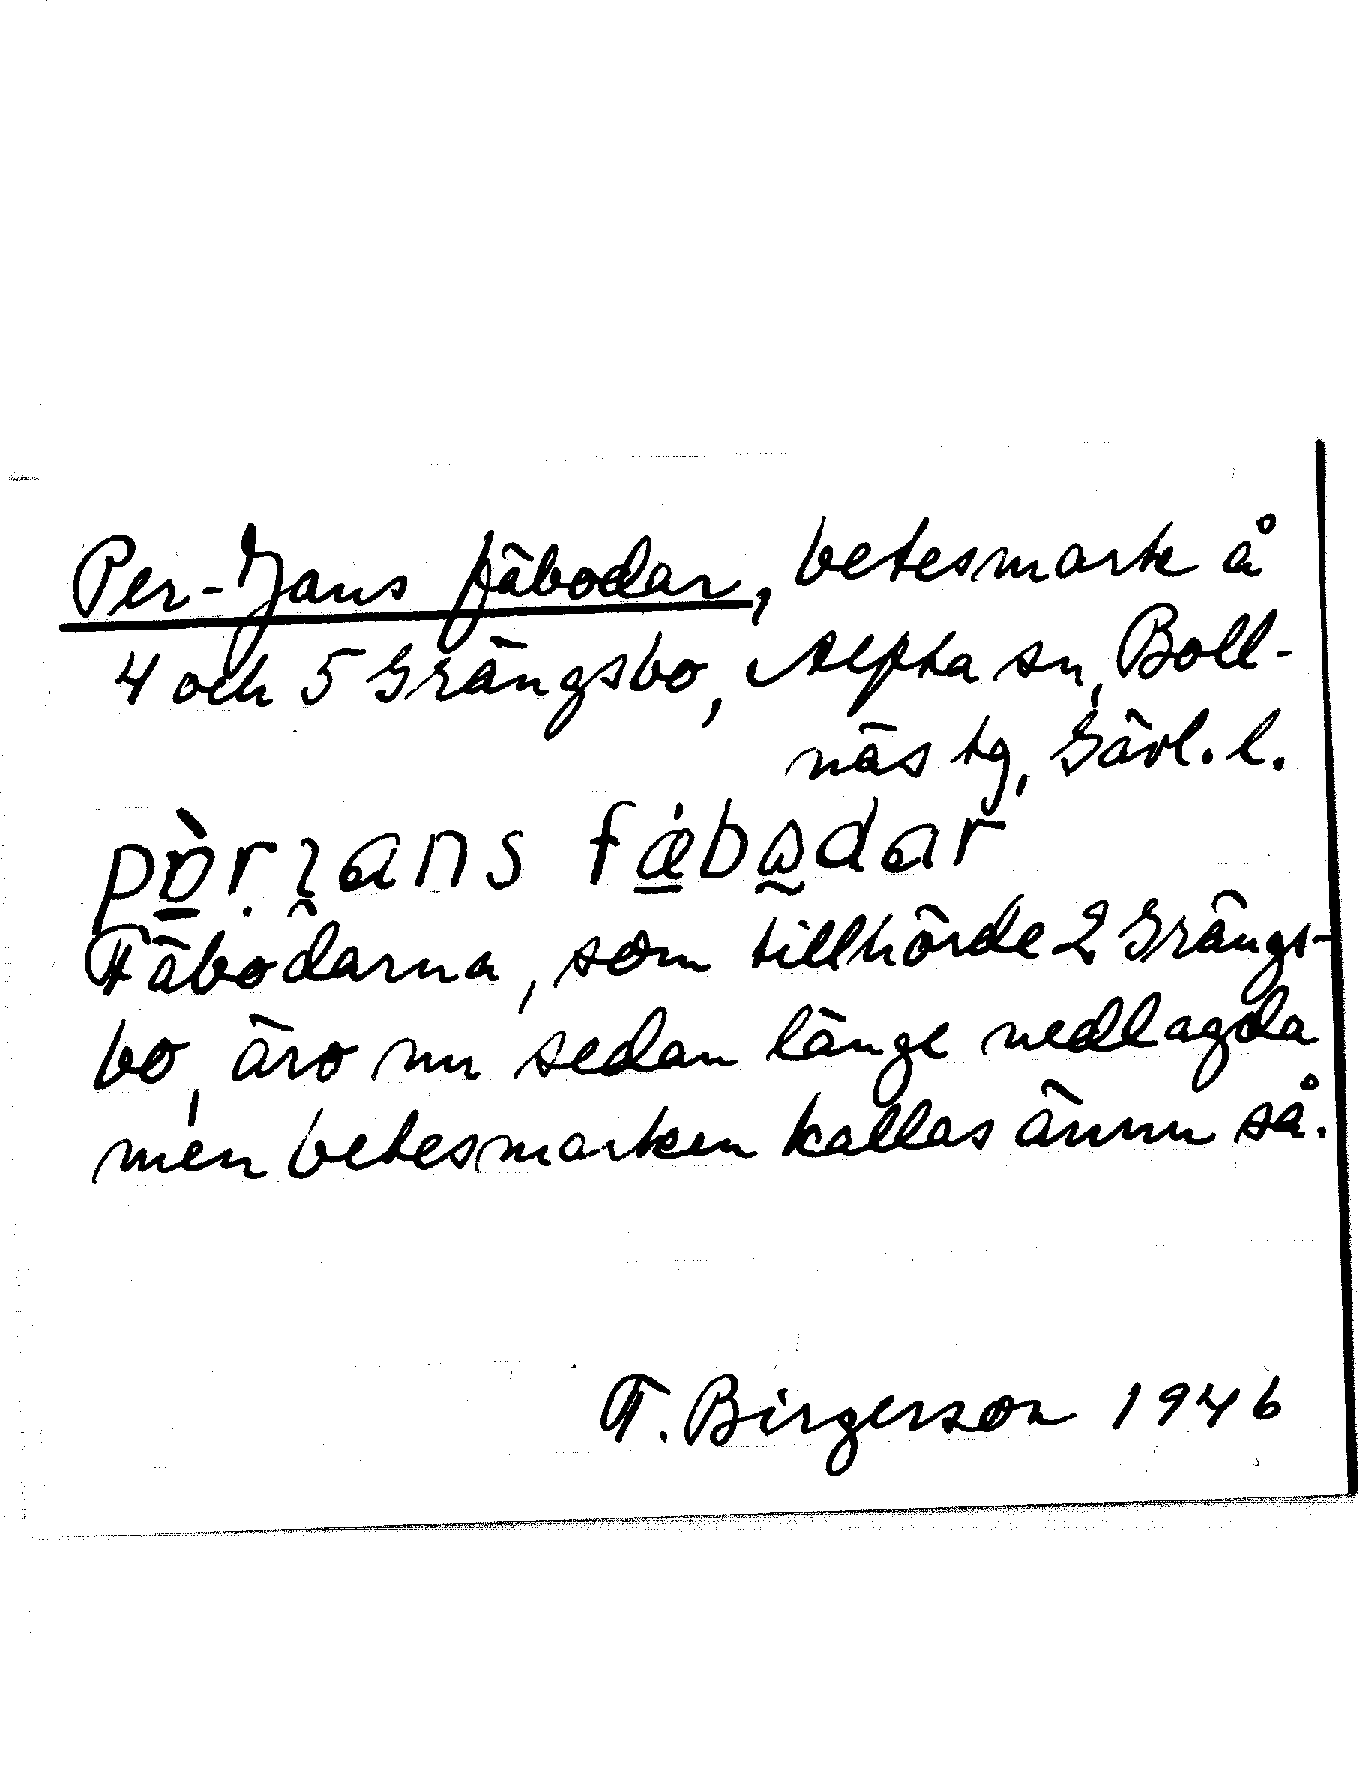 Per-Jans fäbodar, betesmark å
4 och 5 Grängsbo, Alfta sn, Boll-
näs tg, Gävl. l.
fäbodar
Fäbodarna, som tillhörde 2 Grängs-
bo, äro nu sedan länge nedlagda
men betesmarken kallas ännu så.
F. Birgerson 1946